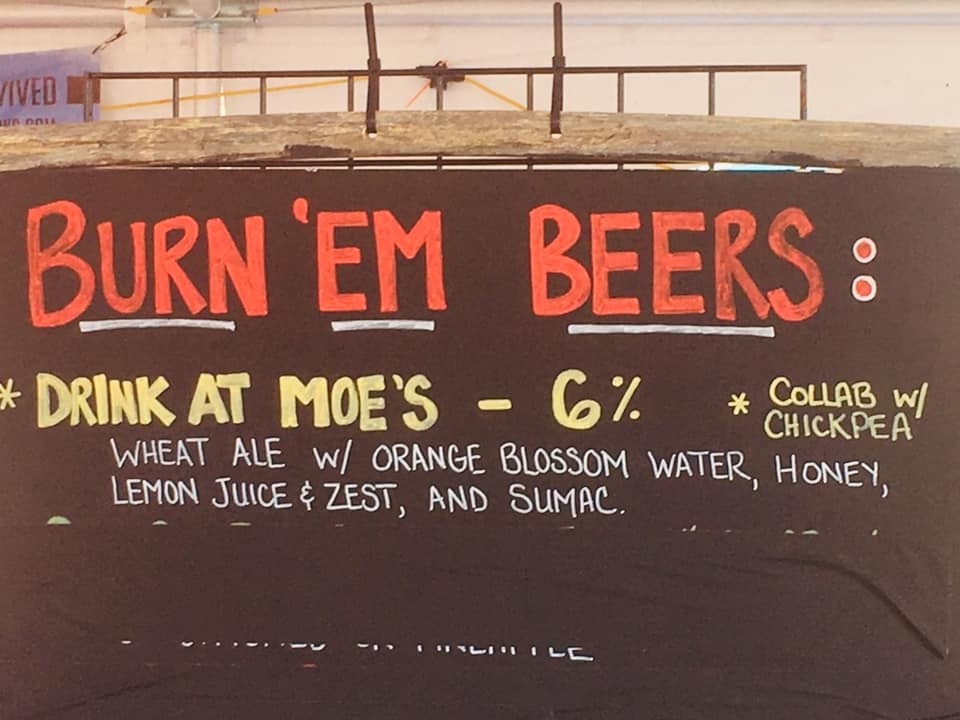 VIVED
BURN 'EM BEERS:
* DRINK AT MOE'S - 6%
* COLLAB W/
CHICKPEA
WHEAT ALE W/ ORANGE BLOSSOM WATER, HONEY,
LEMON JUICE & ZEST, AND SUMAC.